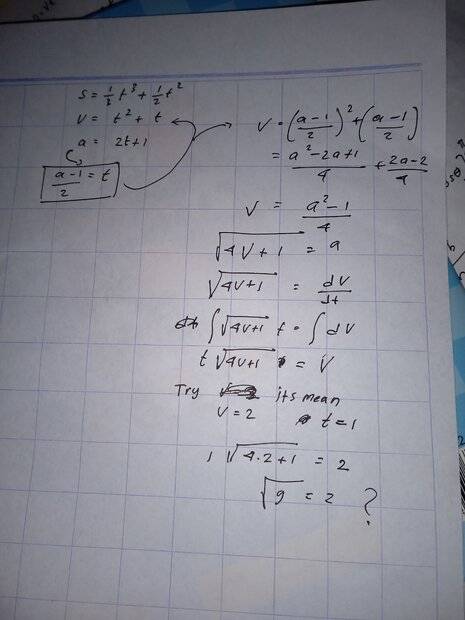 S = 1/3 t³ + 1/2 t²
V = t² + t
a = 2t+1
(a-1)/2 = t
V = ((a-1)/2)² + ((a-1)/2)
= (a²-2a+1)/4 + (2a-2)/4
V = (a²-1)/4
√(4V+1) = a
√(4V+1) = dV/dt
∫ √(4V+1) t = ∫ dV
t √(4V+1) = V
Try its mean
V = 2 t = 1
1 √(4·2+1) = 2
√9 = 2 ?